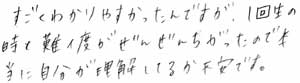 すごくわかりやすかったんですが、1回生の
時と難い度がぜんぜんちがったので本
当に自分が理解してるか不安です。